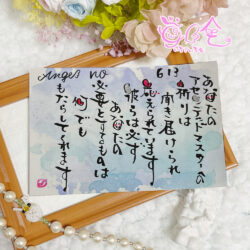 Angel NO 613
あなたの
アセンデッドマスターへの
祈りは
聞き届けられ
答えられています
彼らは必ず
あなたの
必要としてるものは
何でも
もたらしてくれます